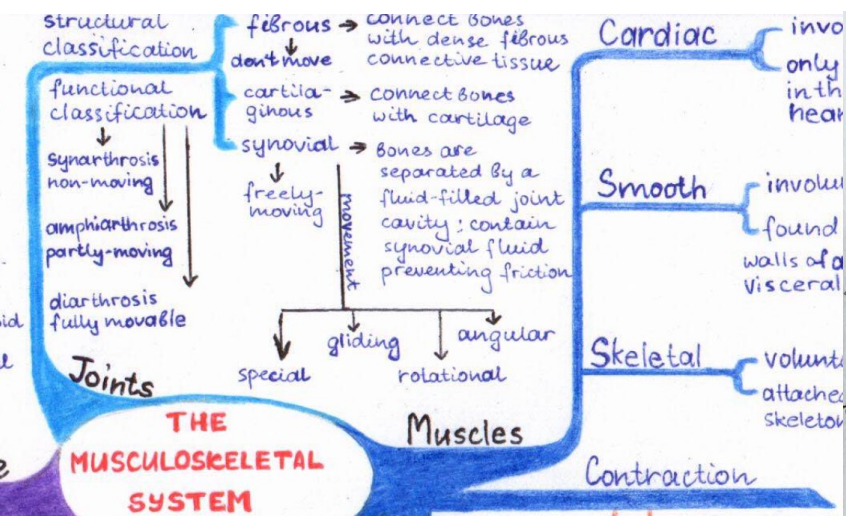 structural
classification
functional
classification
synarthrosis
non-moving
amphiarthrosis
partly-moving
diarthrosis
fully movable
fibrous → connect bones
with dense fibrous
connective tissue
don't move
cartila-
ginous → connect bones
with cartilage
synovial → Bones are
separated by a
fluid-filled joint
cavity; contain
synovial fluid
preventing friction
freely-
moving
movement
special
gliding
rotational
angular
Joints
THE
MUSCULOSKELETAL
SYSTEM
Muscles
Cardiac
only
in th
Smooth
found
walls of a
visceral
Skeletal
attache
skeleto
Contraction